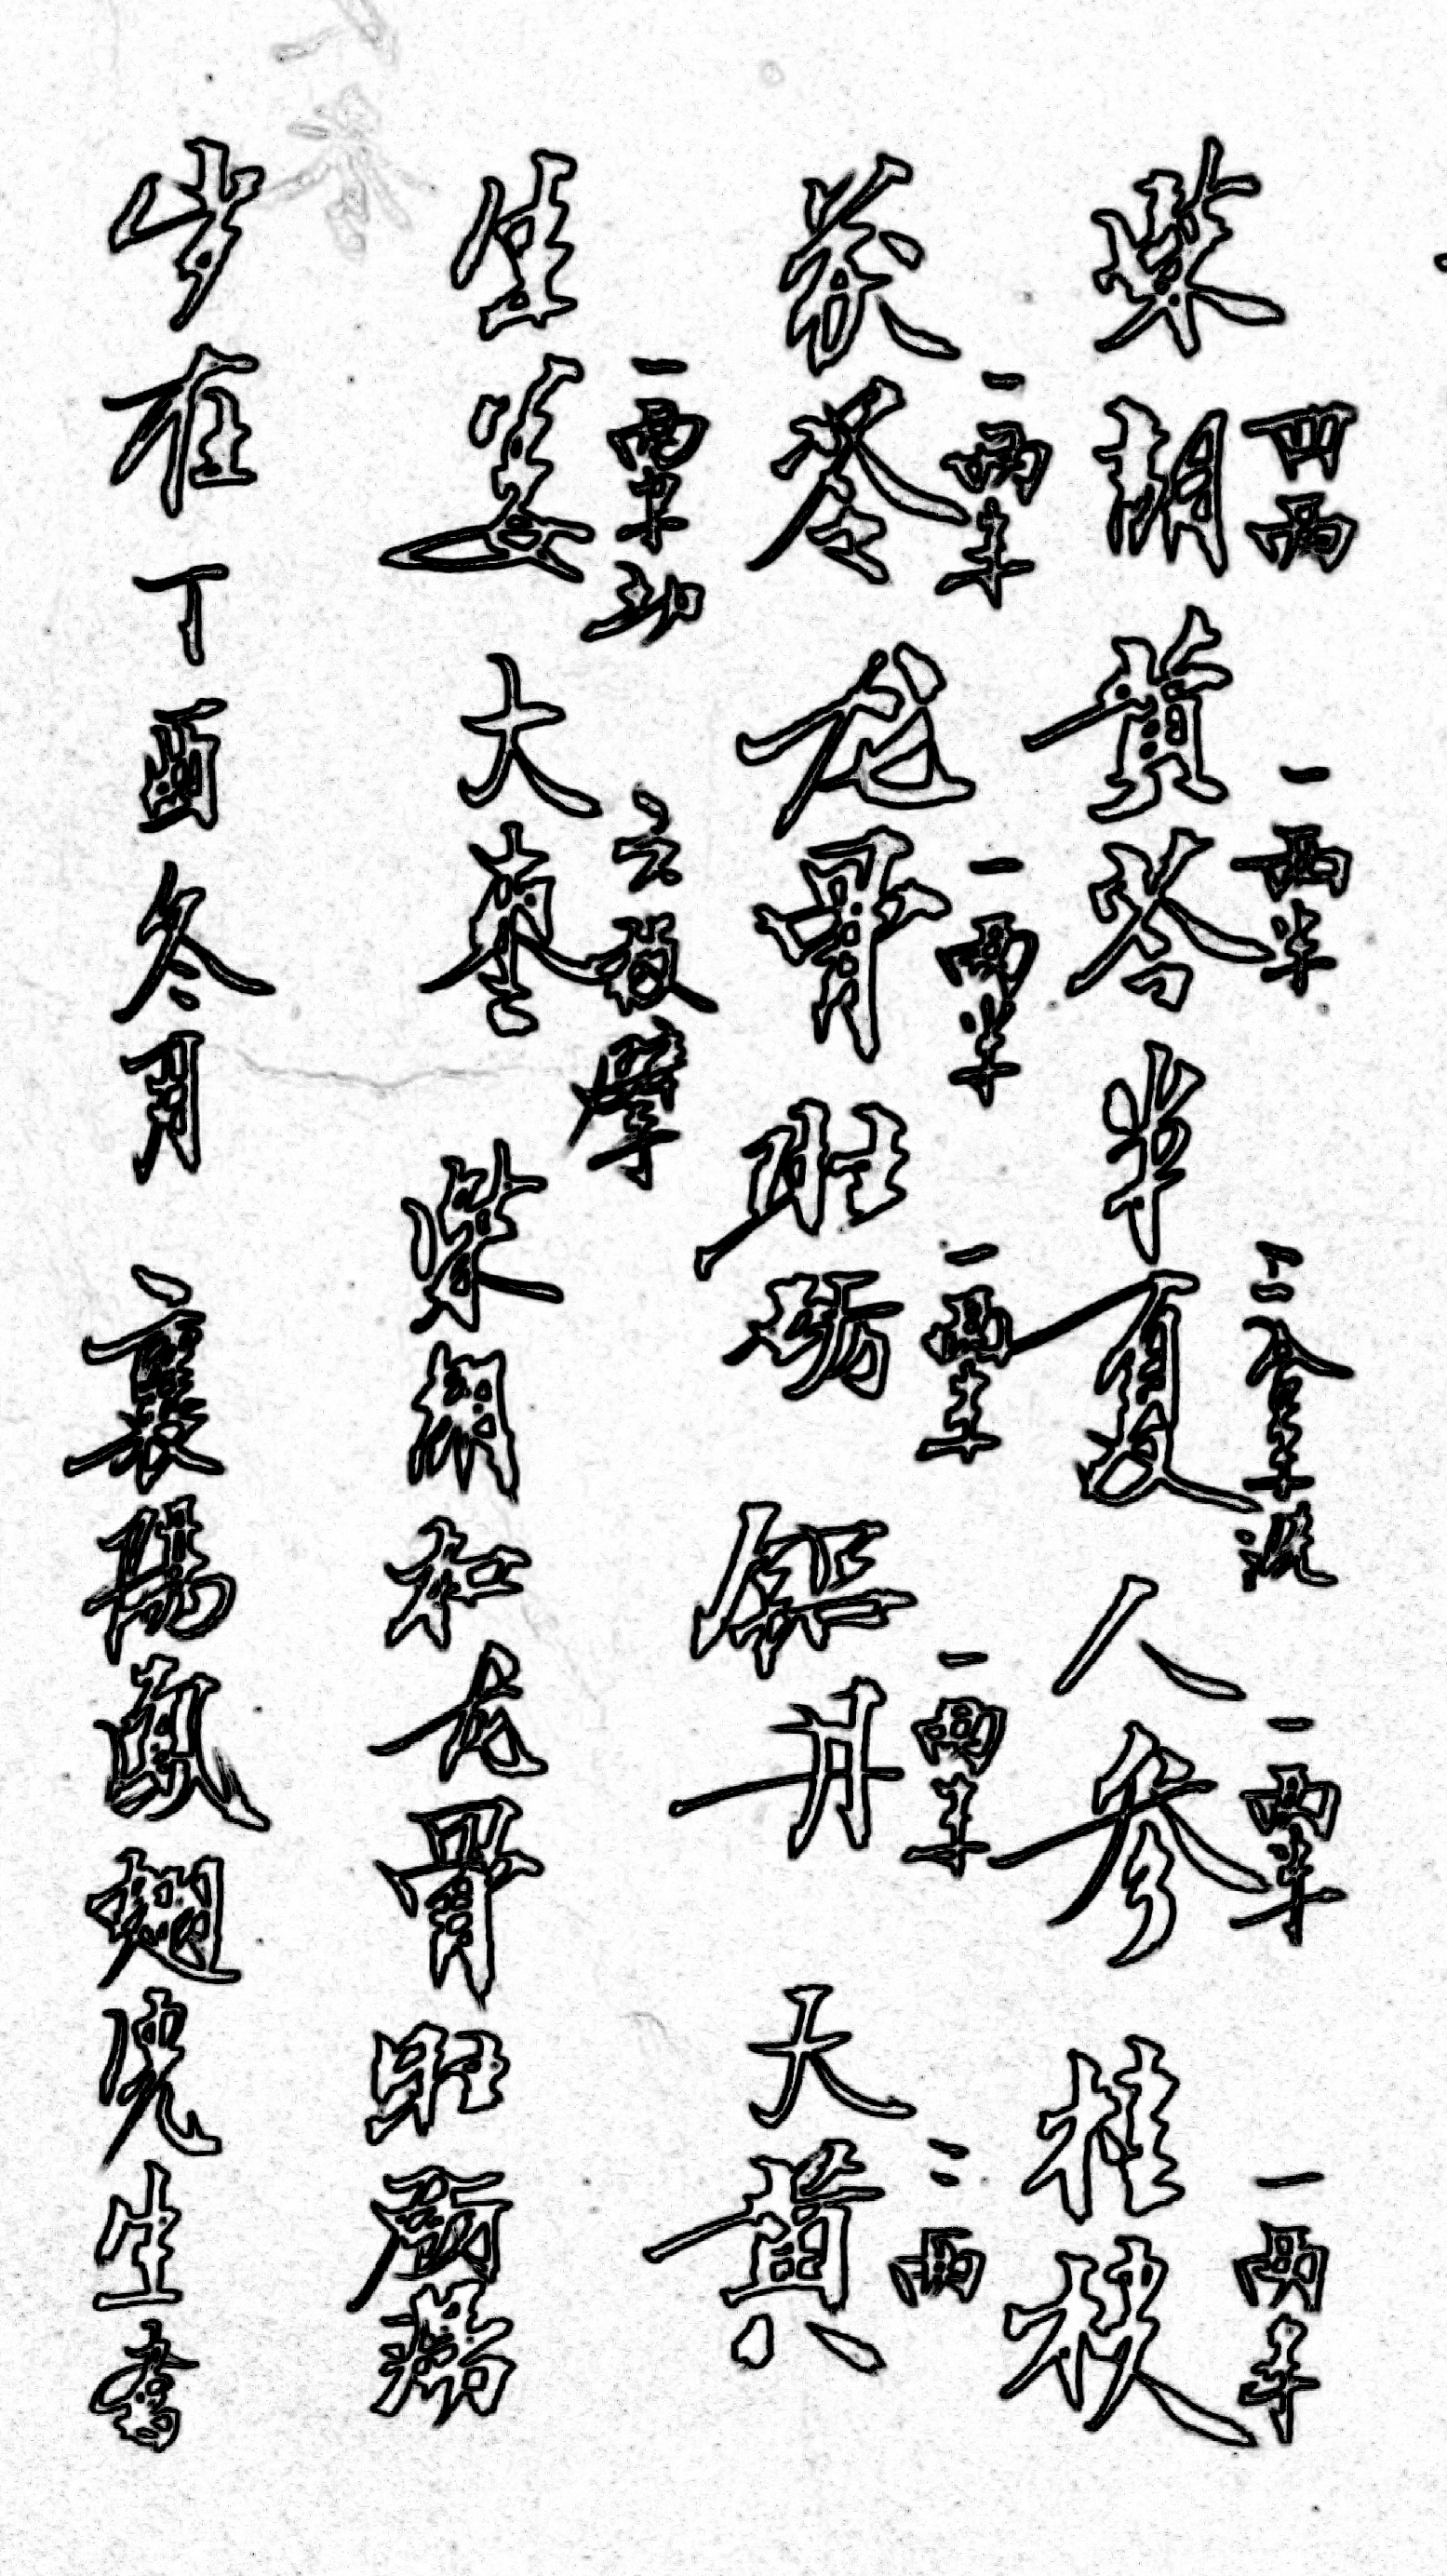 柴胡四兩黄芩一兩半半夏二合半洗人參一兩半桂枝一兩半
茯苓一兩半龙骨一兩半牡蛎一兩半鉛丹一兩半大黄二兩
生姜一兩半切大棗六枚擘柴胡加龙骨牡蠣湯
岁在丁酉冬月襄陽生書